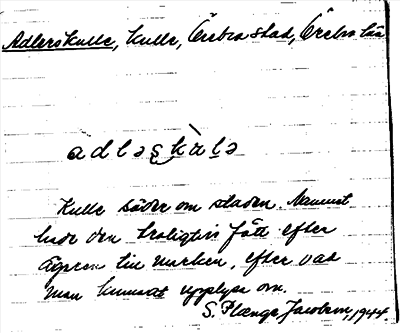 Adlerskulle, kulle, Örebro stad, Örebro län
àdləs̥kùlə
Kulle söder om staden. Namnet
hade den troligtvis fått efter
ägaren till marken, efter vad
man kunnat upplysa om.
S. Plænge Jacobson, 1944.